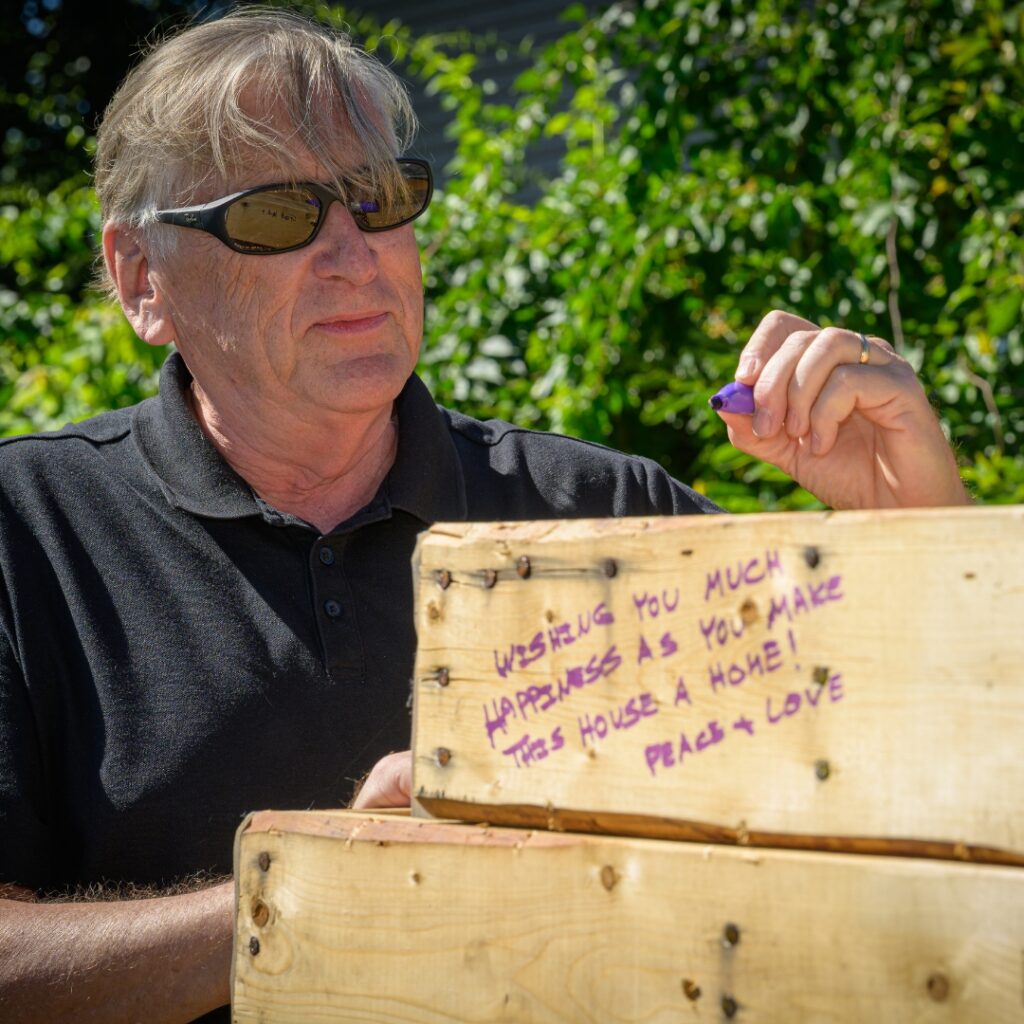 WISHING YOU MUCH
HAPPINESS AS YOU MAKE
THIS HOUSE A HOME!
PEACE + LOVE